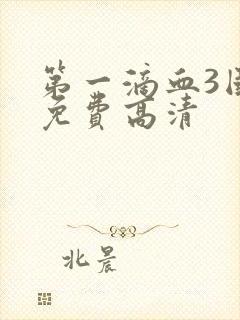 第一滴血3国
免费高清
北晨